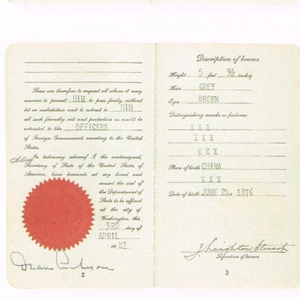 These are therefore to request all whom it may
concern to permit HIM to pass freely, without
let or molestation and to extend to HIM
all such friendly aid and protection as would be
extended to like OFFICERS
of Foreign Governments resorting to the United
States.
Acting In testimony whereof I, the undersigned,
Secretary of State of the United States of
America, have hereunto set my
hand and
caused the seal of
the Department
of State to be affixed
at the city of
Washington, this
3RD day of
APRIL
19 47.
Dean Acheson
2
Description of bearer
Height 5 feet inches
Hair GREY
Eyes BROWN
Distinguishing marks or features:
X X X
X X X
X X X
Place of birth CHINA
Date of birth JUNE 24, 1876
J Leighton Stuart
Signature of bearer
3